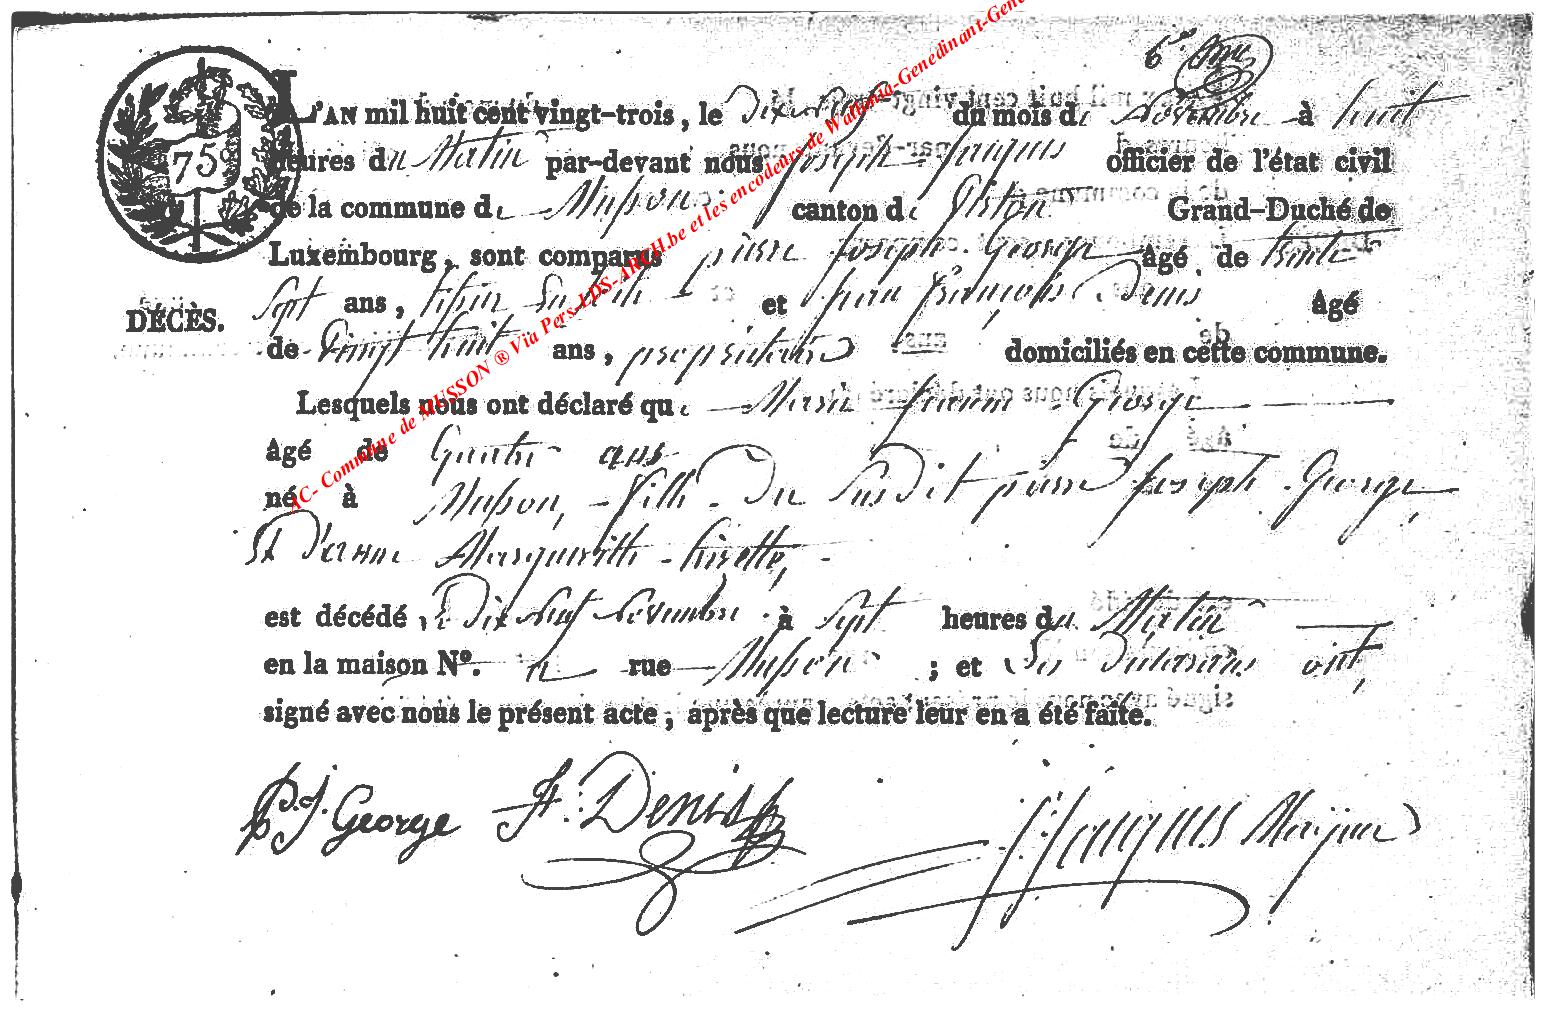 6.e
75c
L'AN mil huit cent vingt-trois, le Dix Sept du mois de Novembre à huit
heures du Matin par-devant nous Joseph Jacques officier de l'état civil
de la commune de Musson canton de Virton Grand-Duché de
Luxembourg, sont comparus pierre Joseph George âgé de trente
Sept ans, et jean François Denis âgé
DÉCÈS.
de Vingt huit ans, proprietaire domiciliés en cette commune.
Lesquels nous ont déclaré que Marie George
âgé de Quatre ans
né à Musson, fille Du Susdit pierre Joseph George,
Et D'anne Margueritte
est décédé le Dix Sept Novembre à Sept heures du Matin
en la maison N°. rue Musson ; et Les ont
signé avec nous le présent acte, après que lecture leur en a été faite.
P.J. George JF. Denis J. Jacques Mayeur
AC- Commune de MUSSON ® Via Pers-LDS-ARCH.be et les encodeurs de Wallonia-Genedinant-Gene